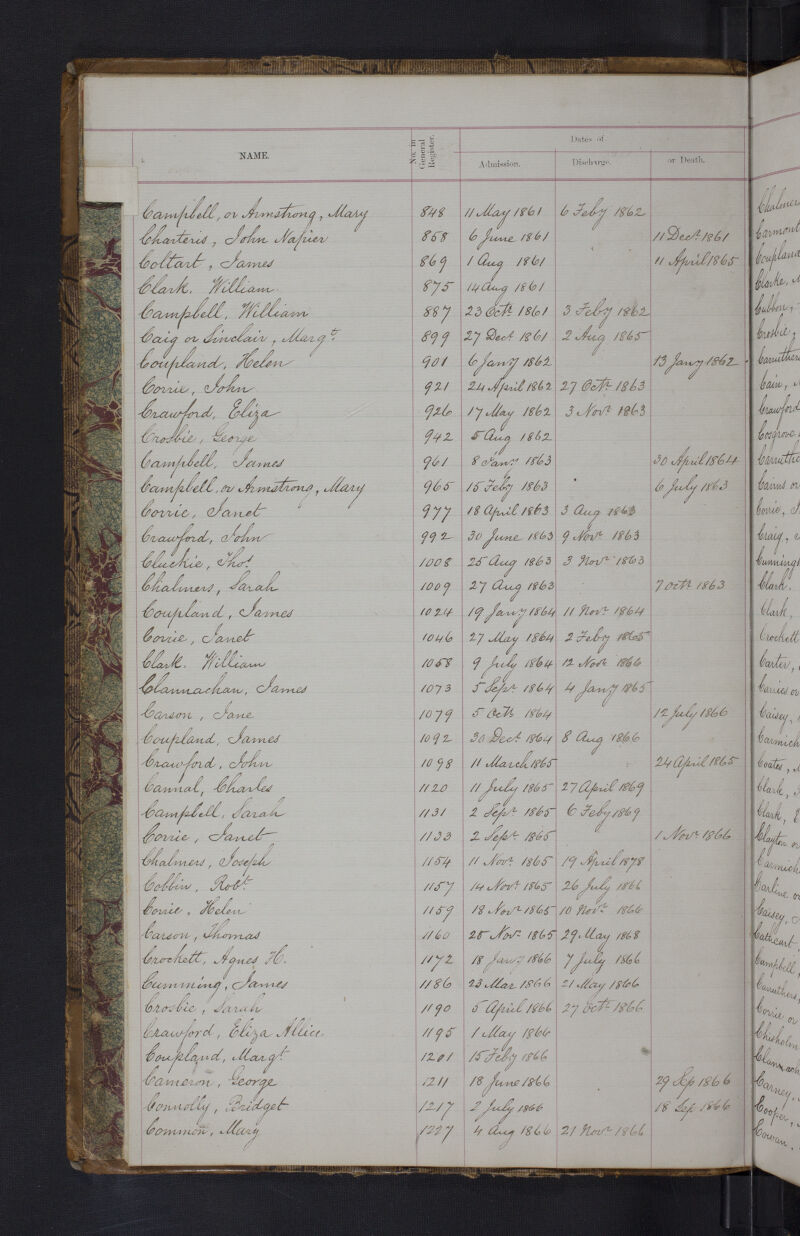 NAME. No. in General Register. Dates of
Admission. Discharge. or Death.
Campbell, or Armstrong, Mary 848 11 May 1861 6 Feby 1862
Charteris, John Napier 858 6 June 1861 11 Decr 1861
Coltart, James 869 1 Aug 1861 11 April 1865
Clark, William 875 14 Aug 1861
Campbell, William 887 23 Octr 1861 3 Feby 1862
Caig or Sinclair, Margt. 899 27 Decr 1861 2 Aug 1865
Coupland, Helen 901 6 Jany 1862 13 Jany 1862
Corrie, John 921 24 April 1862 27 Octr 1863
Crawford, Eliza 926 17 May 1862 3 Novr 1863
Crosbie, George 942 5 Aug 1862
Campbell, James 961 8 Jany 1863 30 April 1864
Campbell, or Armstrong, Mary 965 15 Feby 1863 6 July 1863
Corrie, Janet 977 18 April 1863 3 Aug 1863
Crawford, John 992 30 June 1863 9 Novr 1863
Cluckie, Thos. 1008 25 Aug 1863 3 Novr 1863
Chalmers, Sarah 1009 27 Aug 1863 7 Octr 1863
Coupland, James 1024 19 Jany 1864 11 Novr 1864
Corrie, Janet 1046 27 May 1864 2 Feby 1865
Clark. William 1058 9 July 1864 12 Novr 1866
Clannachan, James 1073 5 Sepr 1864 4 Jany 1865
Carson, Jane 1079 5 Octr 1864 12 July 1866
Coupland, James 1092 30 Decr 1864 8 Aug 1866
Crawford, John 1098 11 March 1865 24 April 1865
Cannal, Charles 1120 11 July 1865 27 April 1869
Campbell, Sarah 1131 2 Sepr 1865 6 Feby 1869
Corrie, Janet 1133 2 Sepr 1865 1 Novr 1866
Chalmers, Joseph 1154 11 Novr 1865 19 April 1878
Cobbin, Robt. 1157 14 Novr 1865 26 July 1866
Corrie, Helen 1159 18 Novr 1865 10 Novr 1866
Carson, Thomas 1160 28 Novr 1865 29 May 1868
Crockett, Agnes H. 1172 18 Jany 1866 7 July 1866
Cumming, James 1186 23 Mar 1866 21 May 1866
Crosbie, Sarah 1190 5 April 1866 27 Octr 1866
Crawford, Eliza Allice 1195 1 May 1866
Coupland, Margt. 1201 15 Feby 1866
Cameron, George 1211 18 June 1866 29 Sep 1866
Connolly, Bridget 1217 2 July 1866 18 Sep 1866
Common, Mary 1227 4 Aug 1866 21 Novr 1866
Chalmer
Carmont
Coupland
Clarke, M
Cubbon,
Crosbie,
Carruthers
Cain,
Crawford
Cosgrove
Carruthe
Cairns or
Corrie, J
Craig,
Cunningh
Clark.
Clark,
Crockett
Carter,
Carries or
Caisey,
Carmich
Coates,
Clark,
Clark, E
Clayton or
Carmich
Carline or
Caisey,
Cathcart
Campbell,
Carruthers,
Corrie or
Chisholm
Clannach
Carney,
Cooper,
Cowan,